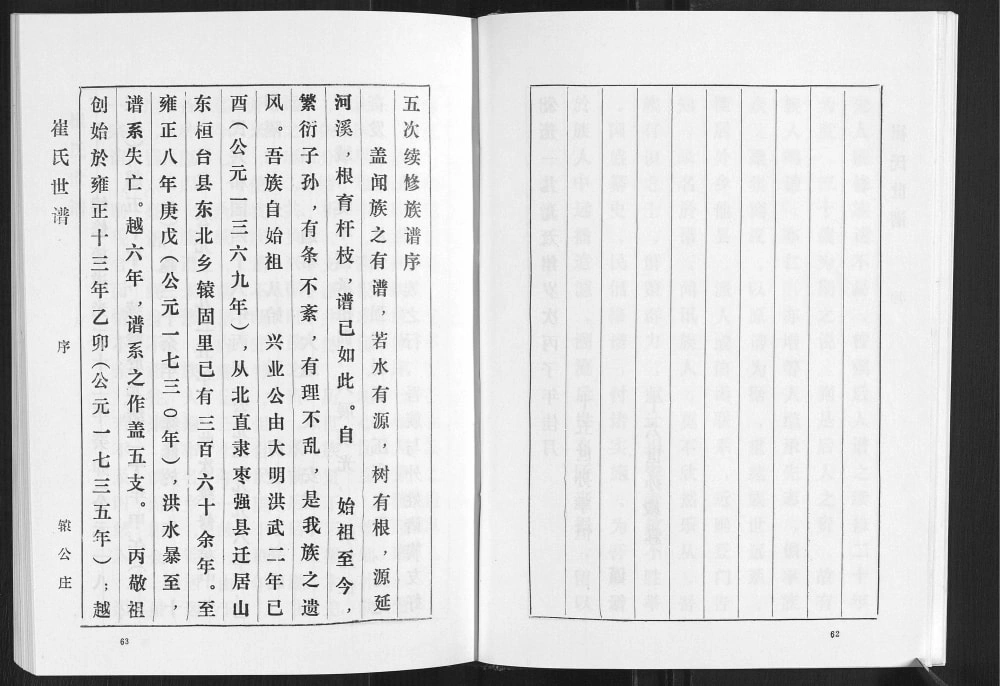 五次续修族谱序
盖闻族之有谱，若水有源，树有根，源延
河溪，根育杆枝，谱已如此。自 始祖至今，
繁衍子孙，有条不紊，有理不乱，是我族之遗
风。吾族自始祖 兴业公由大明洪武二年已
酉（公元一三六九年），从北直隶枣强县迁居山
东桓台县东北乡辕固里已有三百六十余年。至
雍正八年庚戊（公元一七三〇年），洪水暴至，
谱系失亡。越六年，谱系之作盖五支。丙敬祖
创始於雍正十三年乙卯（公元一七三五年）；越
崔氏世谱
序
辕公庄
63
62